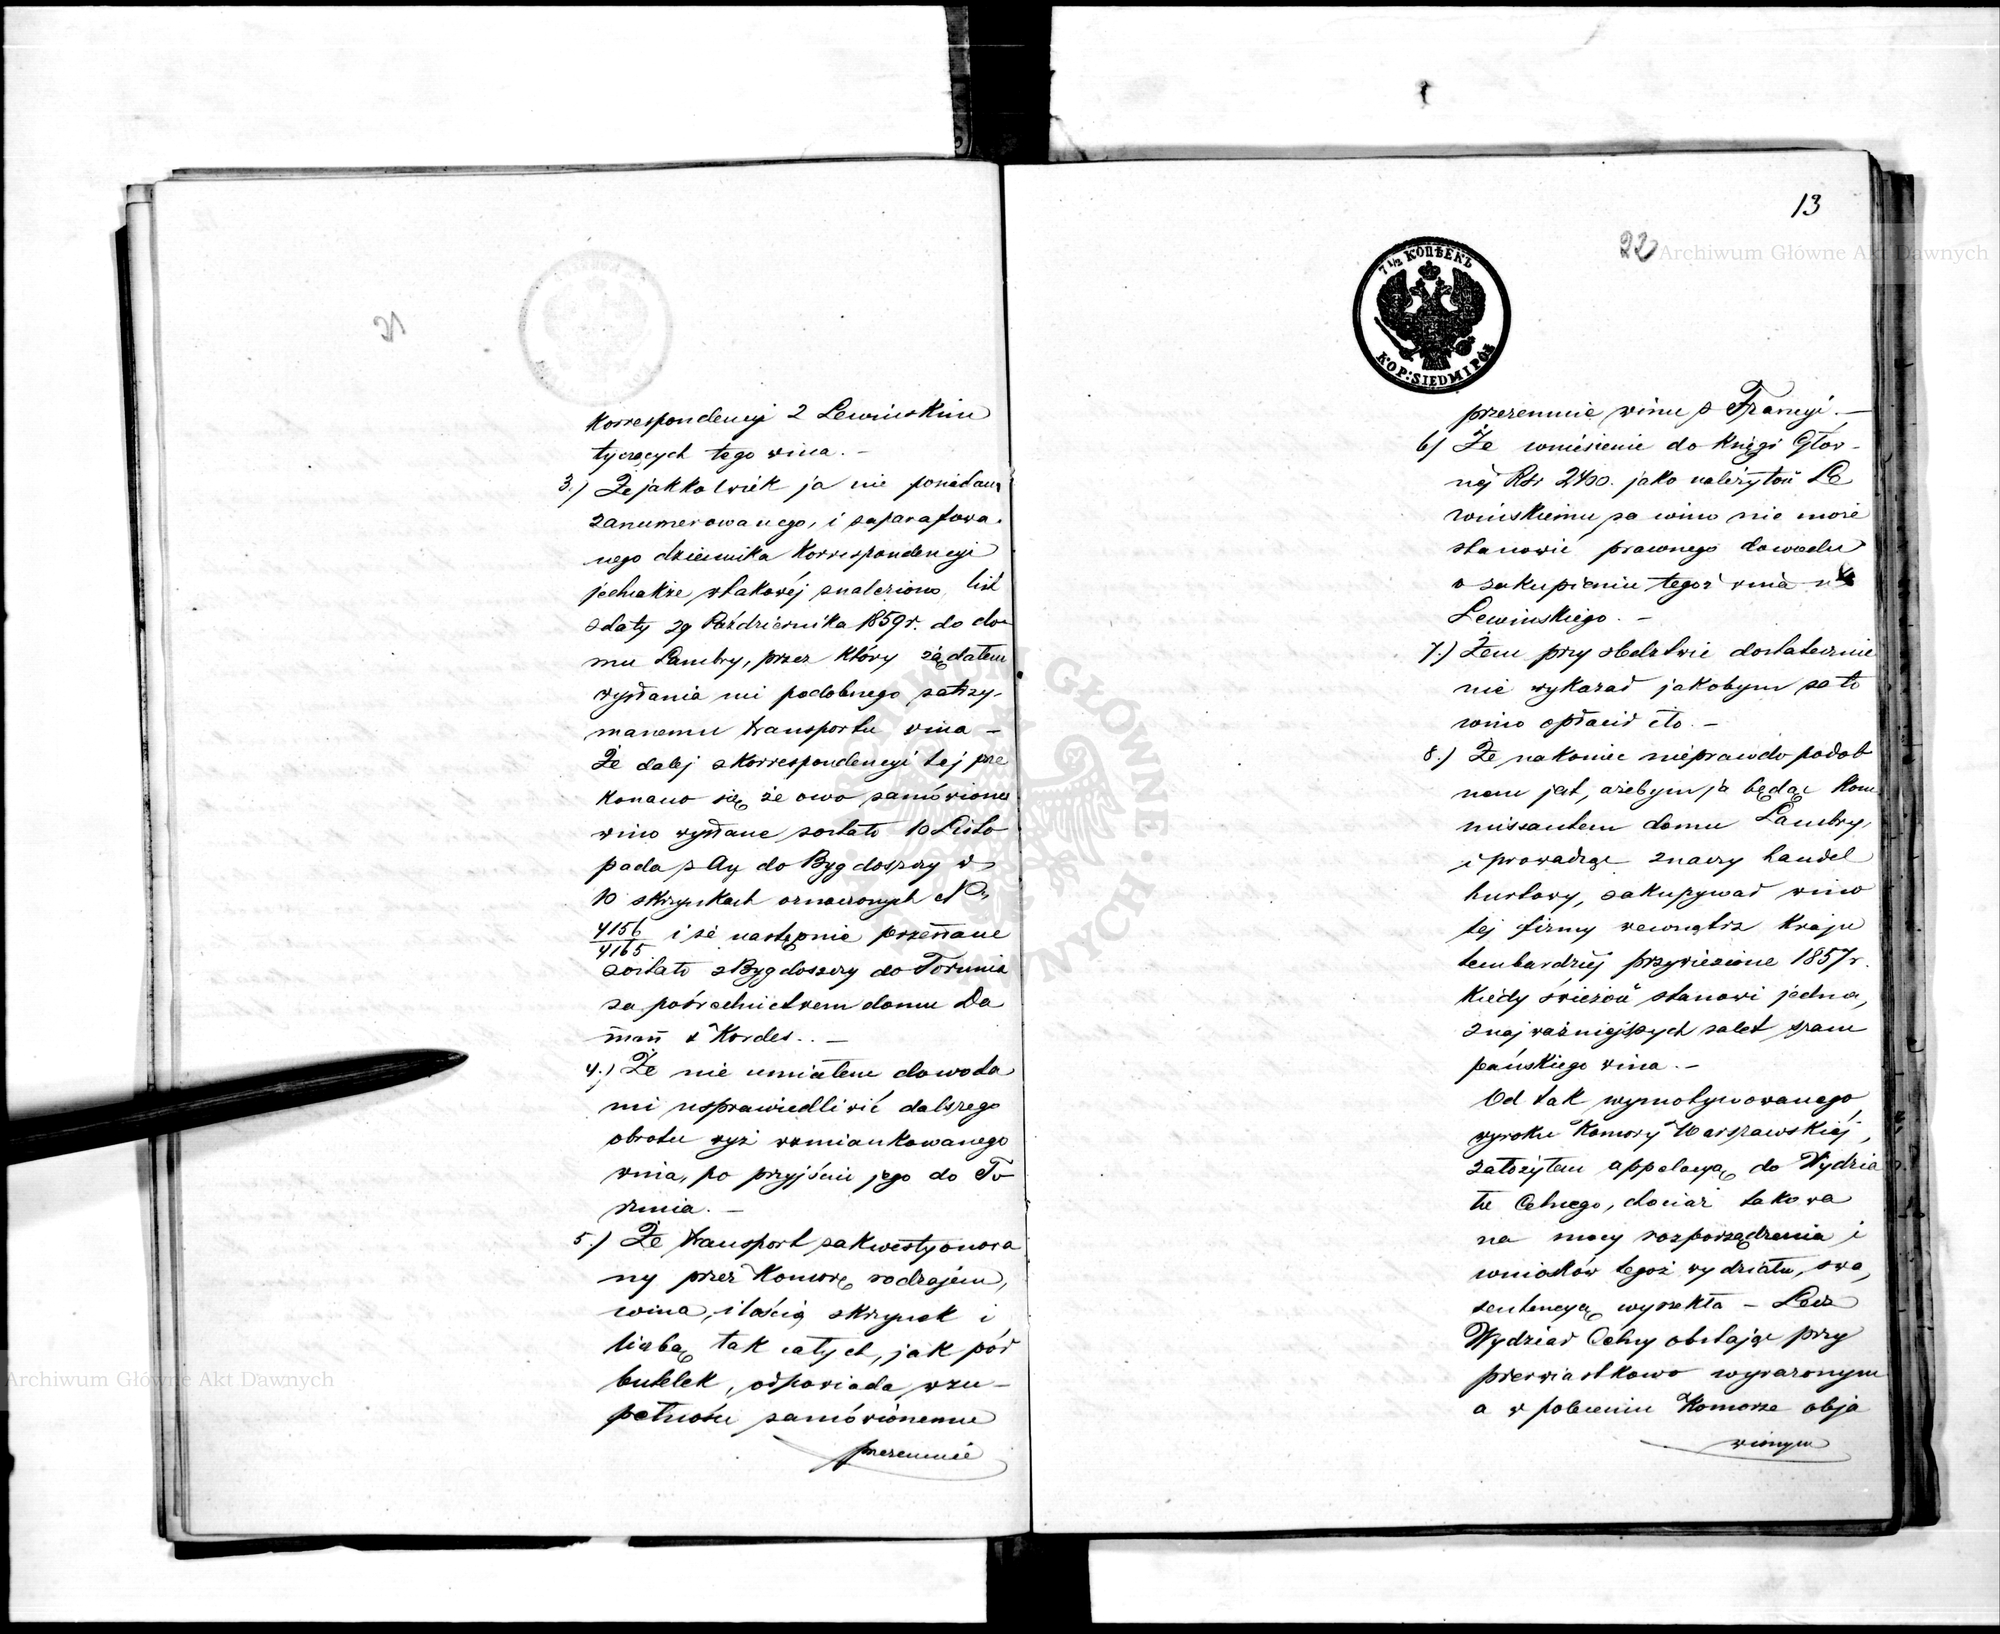 21
korrespondencyi z Lewińskim
tyczących tego wina. –
3.) Że jakkolwiek ja nie posiadam
zanumerowanego, i zaparafowa-
nego dziennika korrespondencyi
jednakże w takowéj znaleziono list
z daty 29 Października 1859 r. do do
mu Lambry, przez który żądałem
wysłania mi podobnego zatrzy-
manemu transportu wina –
Że daléj z korrespondencyi téj prze
konano się że owo zamówione
wino wysłane zostało 10 Listo
pada z Ay do Bygdoszczy w
10 skrzynkach oznaczonych No
4156/4165 i że następnie przesłane
zostało z Bygdoszczy do Torunia
za pośrednictwem domu Da
mm & Kordes. . –
4.) Że nie umiałem dowoda
mi usprawiedliwić dalszego
obrotu wyż wzmiankowanego
wina, po przyjściu jego do To
runia. –
5.) Że transport zakwestyonowa
ny przez Komorę rodzajem,
wina, ilością skrzynek i
liczbą tak całych, jak pół
butelek, odpowiada w zu-
pełności zamówionemu
przezemnie
13
22
7 1/2 КОПѢЕКЪ
KOP: SIEDMIPÓŁ
przezemnie winu z Francyi. –
6) Że wniesienie do księgi Głów-
néj Rsr 2400. jako należytość Le
wińskiemu za wino nie może
stanowić prawnego dowodu
o zakupieniu tegoż wina u
Lewinskiego. –
7.) Żem przy śledztwie dostatecznie
nie wykazał jakobym za to
wino opłacił cło. –
8.) Że nakoniec nieprawdopodob
nem jest, ażebym ja będąc kom
missantem domu Lambry,
i prowadząc znaczny handel
hurtowy, zakupywał wino
téj firmy wewnątrz kraju
tembardziéj przywiezione 1857 r.
kiedy świeżość stanowi jedną,
z najważniejszych zalet szam
pańskiego wina. –
Od tak wymotywowanego
wyroku Komory Warszawskiéj,
założyłem appelacyą do Wydzia
łu Celnego, chociaż takowa
na mocy rozporządzenia i
wniosków tegoż wydziału, swą,
sentencyą wyrzekła – Lecz
Wydział Celny obstając przy
pierwiastkowo wyrażonym
a w poleceniu Komorze obja
wionym
Archiwum Główne Akt Dawnych
Archiwum Główne Akt Dawnych